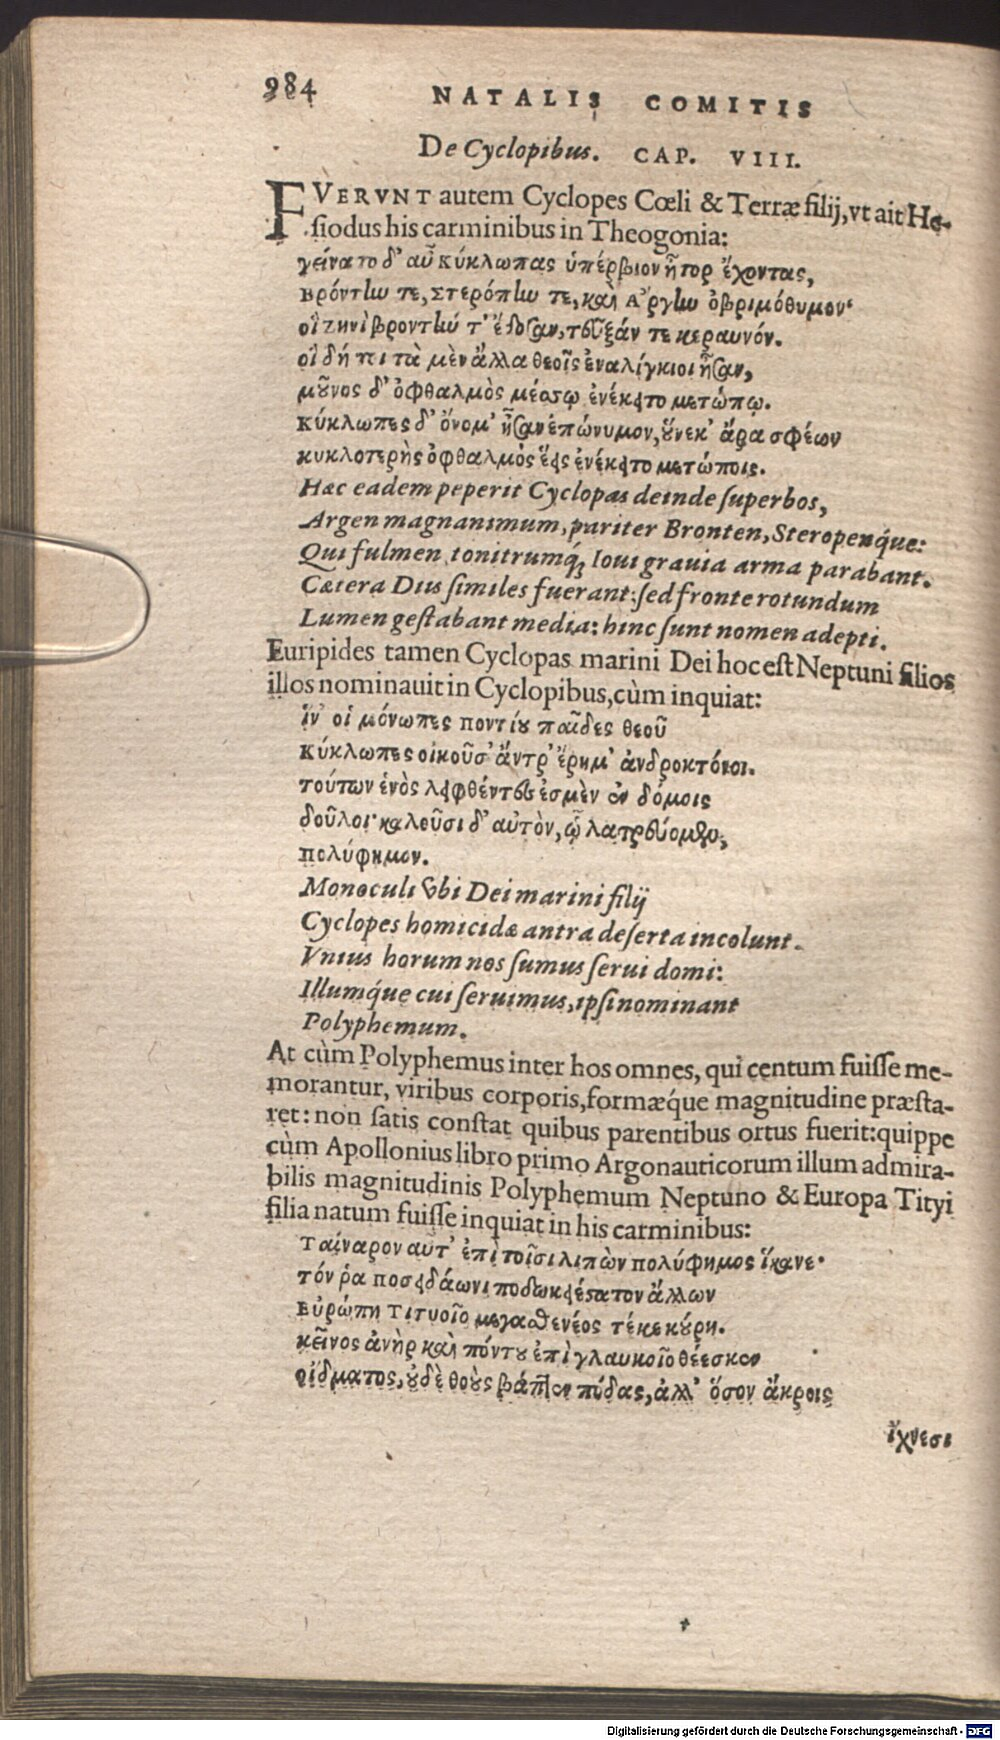 984 NATALIS COMITIS
De Cyclopibus. CAP. VIII.
FVERVNT autem Cyclopes Cœli & Terræ filij, vt ait He-
siodus his carminibus in Theogonia:
γείνατο δ' αὖ Κύκλωπας ὑπέρβιον ἦτορ ἔχοντας,
Βρόντην τε, Στερόπην τε, καὶ Ἄργην ὀβριμόθυμον·
οἳ Ζηνὶ βροντήν τ' ἔδοσαν, τεῦξάν τε κεραυνόν.
οἱ δή τι τὰ μὲν ἄλλα θεοῖς ἐναλίγκιοι ἦσαν,
μοῦνος δ' ὀφθαλμὸς μέσσῳ ἐνέκειτο μετώπῳ.
Κύκλωπες δ' ὄνομ' ἦσαν ἐπώνυμον, οὕνεκ' ἄρα σφέων
κυκλοτερὴς ὀφθαλμὸς ἕεις ἐνέκειτο μετώποις.
Hæc eadem peperit Cyclopas deinde superbos,
Argen magnanimum, pariter Bronten, Steropenq́ue:
Qui fulmen tonitrumq́; Ioui grauia arma parabant.
Cætera Diis similes fuerant: sed fronte rotundum
Lumen gestabant media: hinc sunt nomen adepti.
Euripides tamen Cyclopas marini Dei hoc est Neptuni filios
illos nominauit in Cyclopibus, cùm inquiat:
ἵν' οἱ μόνωπες ποντίου παῖδες θεοῦ
Κύκλωπες οἰκοῦσ' ἄντρ' ἔρημ' ἀνδροκτόνοι.
τούτων ἑνὸς ληφθέντες ἐσμὲν ἐν δόμοις
δοῦλοι· καλοῦσι δ' αὐτὸν, ᾧ λατρεύομεν,
πολύφημον.
Monoculi vbi Dei marini filij
Cyclopes homicidæ antra deserta incolunt.
Vnius horum nos sumus serui domi:
Illumq́ue cui seruimus, ipsi nominant
Polyphemum.
At cùm Polyphemus inter hos omnes, qui centum fuisse me-
morantur, viribus corporis, formæq́ue magnitudine præsta-
ret: non satis constat quibus parentibus ortus fuerit: quippe
cùm Apollonius libro primo Argonauticorum illum admira-
bilis magnitudinis Polyphemum Neptuno & Europa Tityi
filia natum fuisse inquiat in his carminibus:
Ταίναρον αὖτ' ἐπὶ τοῖσι λιπὼν πολύφημος ἵκανε·
τόν ῥα ποσειδάωνι ποδωκειέστατον ἄλλων
Εὐρώπη Τιτυοῖο μεγασθενέος τέκε κούρη.
κεῖνος ἀνὴρ καὶ πόντου ἐπὶ γλαυκοῖο θέεσκεν
οἴδματος, οὐδὲ θοοὺς βάπτεν πόδας, ἀλλ' ὅσον ἄκροις
ἴχνεσι
Digitalisierung gefördert durch die Deutsche Forschungsgemeinschaft - DFG